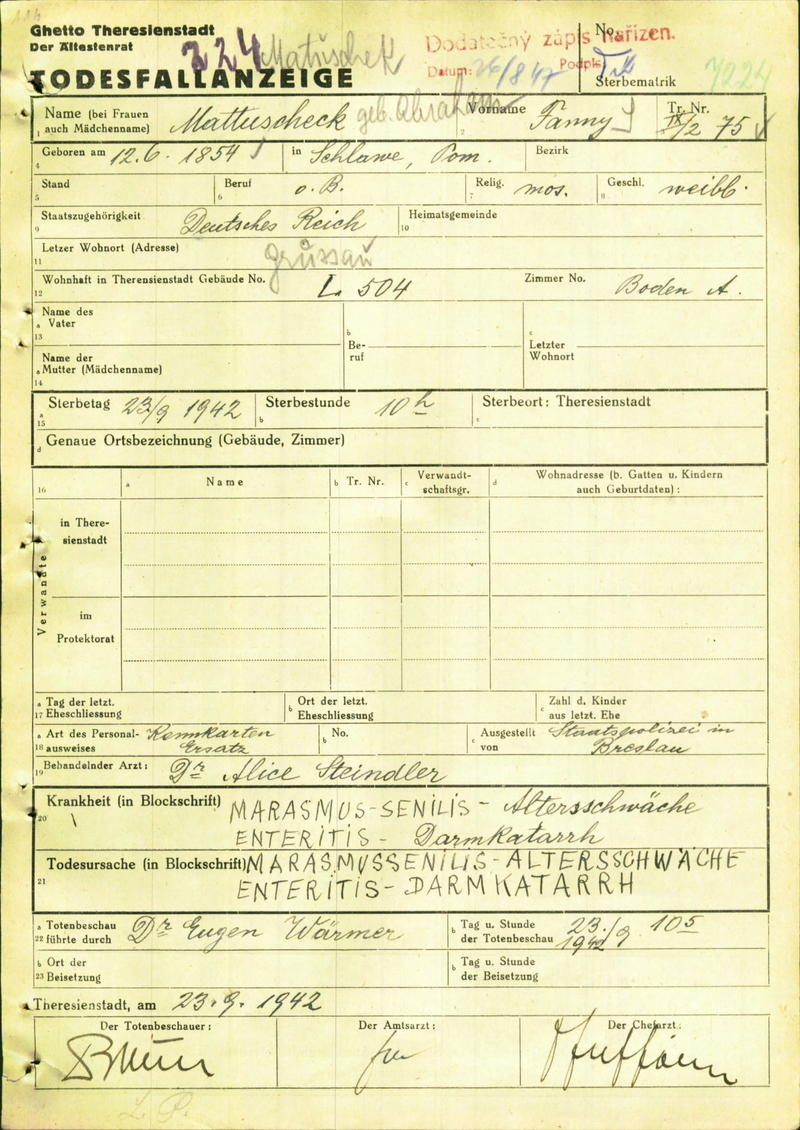 Ghetto Theresienstadt
Der Ältestenrat
224 Matuschek
Dodatečný zápis nařízen.
Datum: 26/8 47 Podpis:
No.
Sterbematrik
7224
TODESFALLANZEIGE
Name (bei Frauen auch Mädchenname) Mattuscheck geb. Abraham
1
Vorname Fanny
2
Tr. Nr. IX/2 75
3
Geboren am 12.6. 1854 in Schlawe, Pom. Bezirk
4
Stand Beruf o. B. Relig. mos. Geschl. weibl.
5 6 7 8
Staatszugehörigkeit Deutsches Reich Heimatsgemeinde
9 10
Letzer Wohnort (Adresse) Grüssau
11
Wohnhaft in Therensienstadt Gebäude No. L 504 Zimmer No. Boden A.
12
Name des
a Vater
13
Name der
a Mutter (Mädchenname)
14
b
Be-
ruf
c
Letzter
Wohnort
a Sterbetag 23/9 1942 Sterbestunde 10 h Sterbeort: Theresienstadt
15 b c
d Genaue Ortsbezeichnung (Gebäude, Zimmer)
16 a Name b Tr. Nr. c Verwandt-
schaftsgr. d Wohnadresse (b. Gatten u. Kindern
auch Geburtdaten):
Verwandte
in There-
sienstadt
im
Protektorat
a Tag der letzt.
17 Eheschliessung
b Ort der letzt.
Eheschliessung
c Zahl d. Kinder
aus letzt. Ehe
a Art des Personal-
18 ausweises
Kennkarten
Ersatz
b No.
c Ausgestellt
von
Staatspolizei in
Breslau
19 Behandelnder Arzt: Dr Alice Steindler
Krankheit (in Blockschrift) MARASMUS-SENILIS - Altersschwäche
20 ENTERITIS - Darmkatarrh
Todesursache (in Blockschrift) MARASMUSSENILIS-ALTERSSCHWÄCHE
21 ENTERITIS-DARMKATARRH
a Totenbeschau
22 führte durch
Dr Eugen Wärmer
b Tag u. Stunde
der Totenbeschau
23./9 10 5
1942
b Ort der
23 Beisetzung
b Tag u. Stunde
der Beisetzung
Theresienstadt, am 23.9.1942
Der Totenbeschauer: Der Amtsarzt: Der Chefarzt: